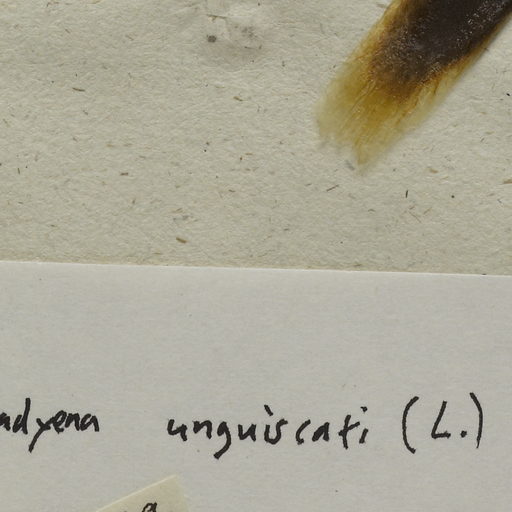 adyena unguiscati (L.)